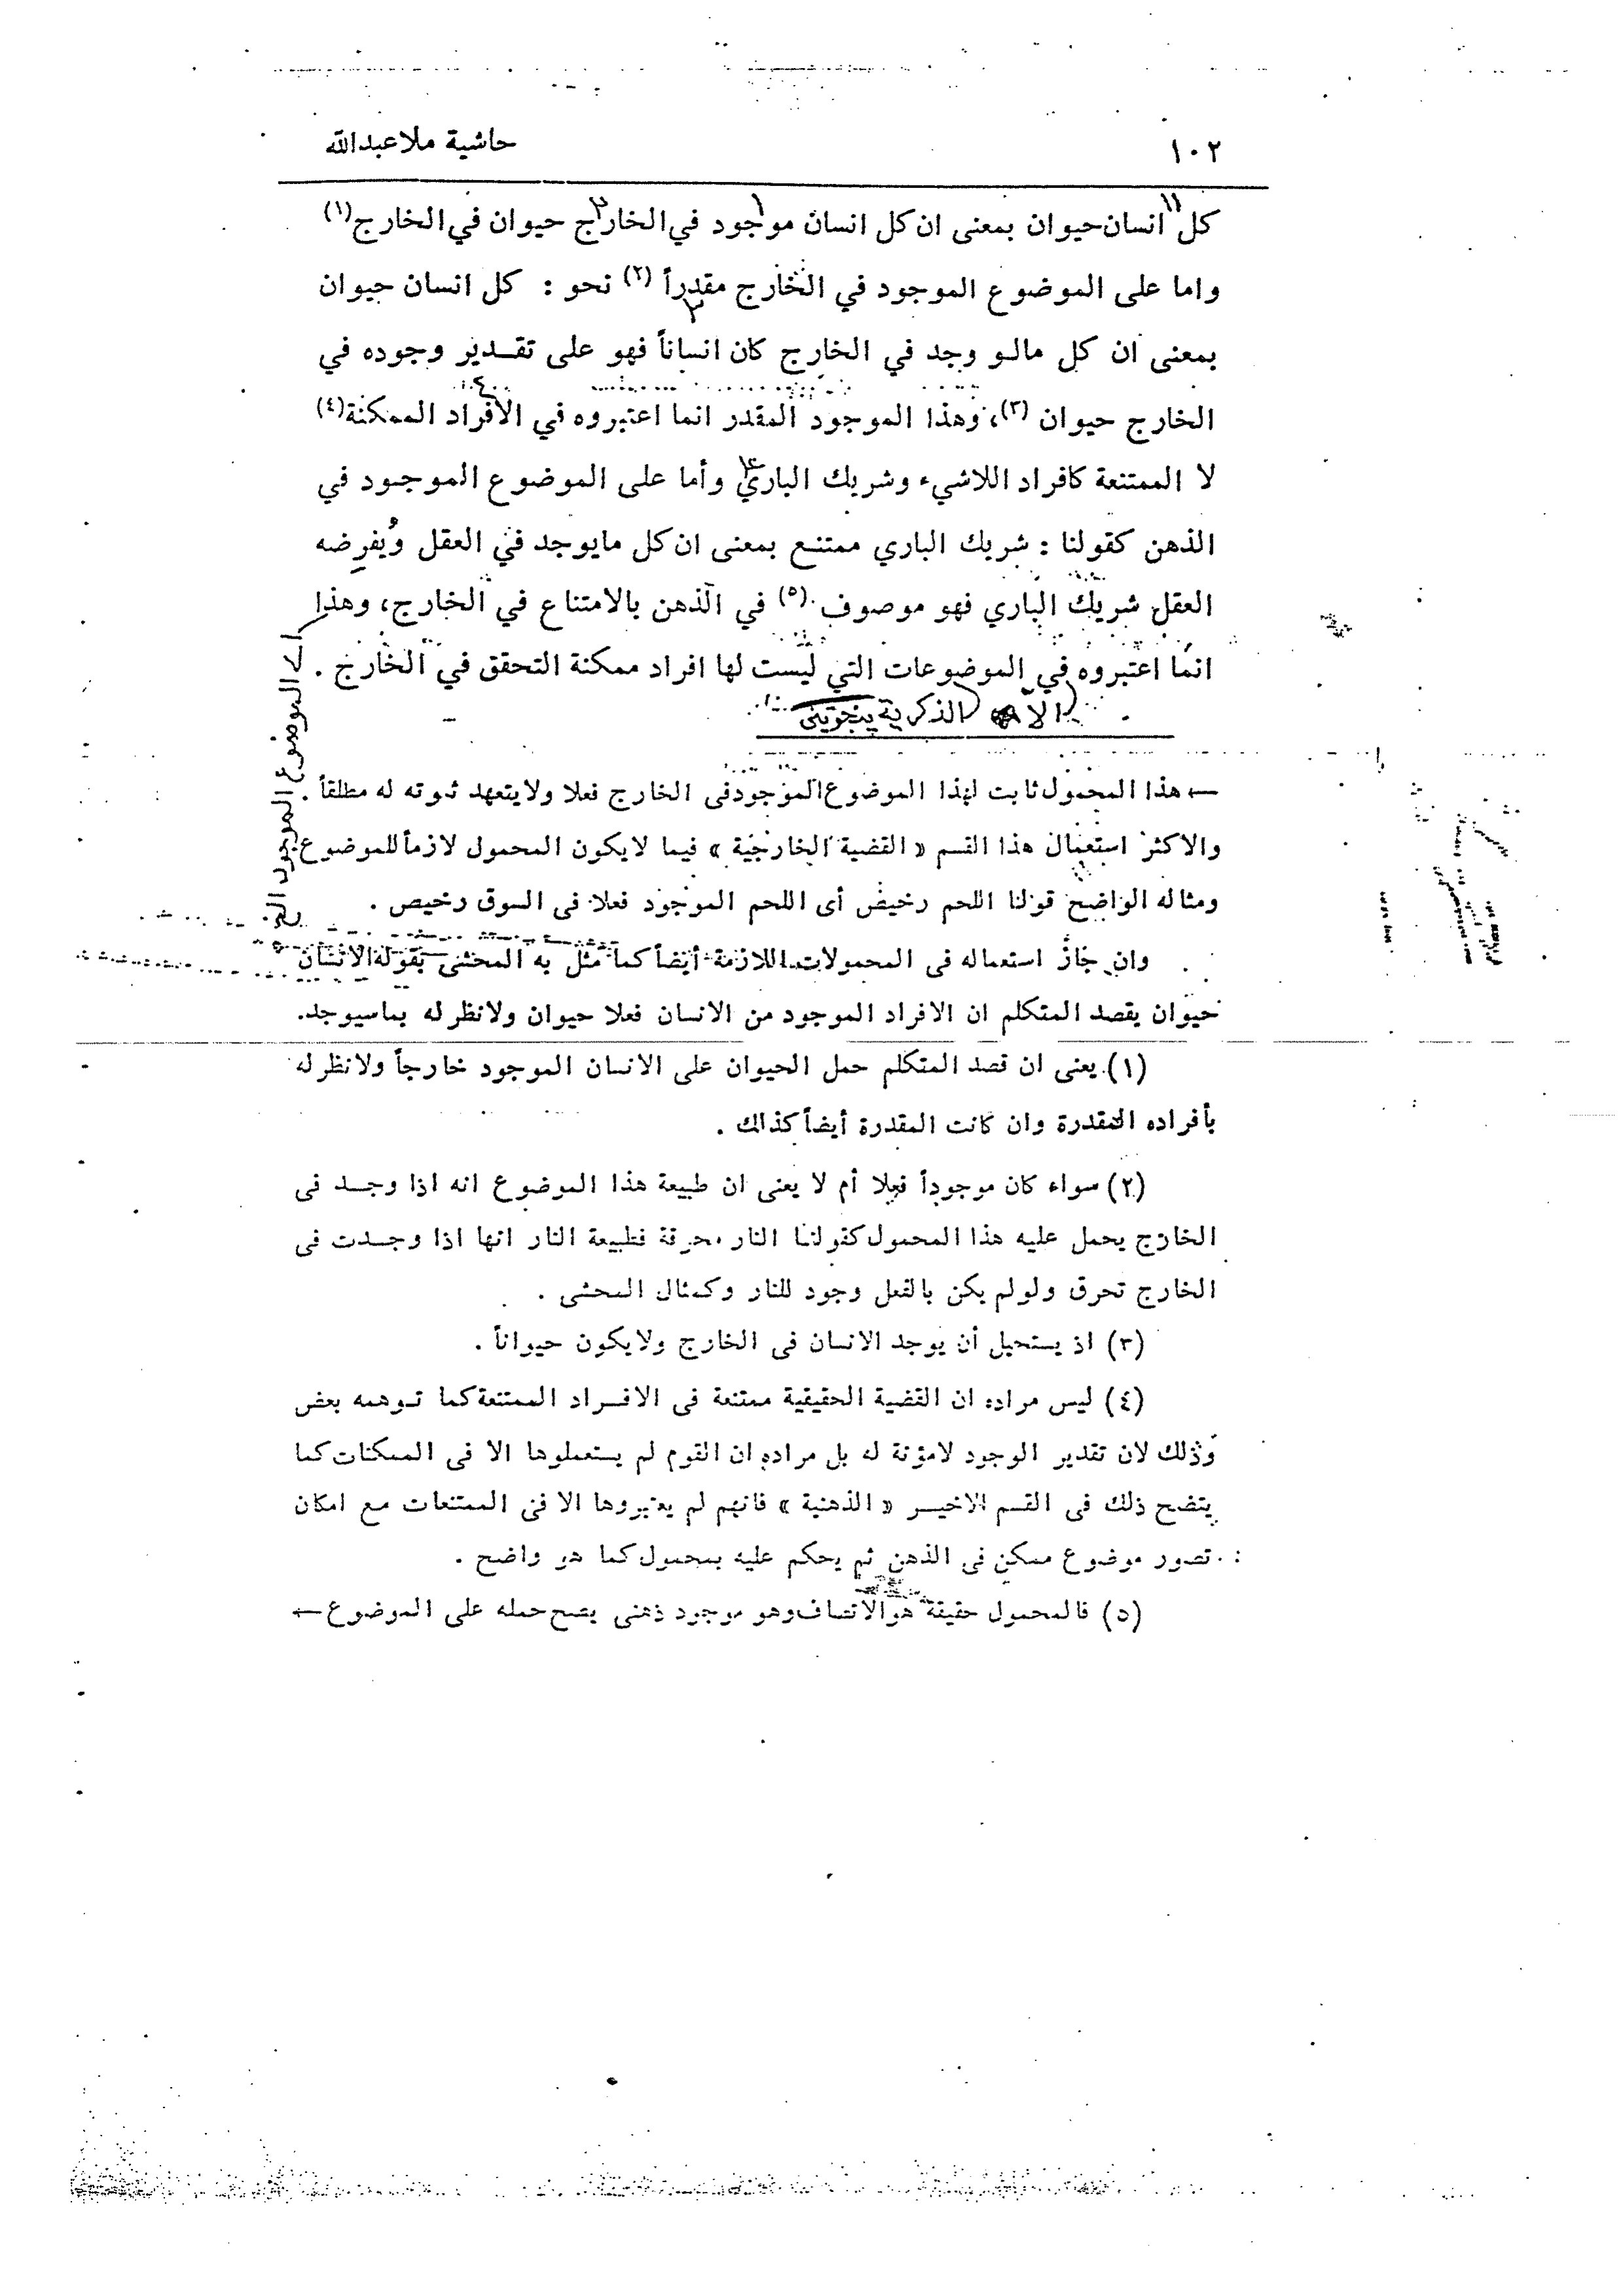 ١٠٢ حاشية ملاعبدالله
كل انسان حيوان بمعنى ان كل انسان موجود في الخارج حيوان في الخارج (١)
واما على الموضوع الموجود في الخارج مقدراً (٢) نحو : كل انسان حيوان
بمعنى ان كل مالو وجد في الخارج كان انساناً فهو على تقدير وجوده في
الخارج حيوان (٣)، وهذا الموجود المقدر انما اعتبروه في الافراد الممكنة (٤)
لا الممتنعة كافراد اللاشيء وشريك الباري وأما على الموضوع الموجود في
الذهن كقولنا : شريك الباري ممتنع بمعنى ان كل مايوجد في العقل ويفرضه
العقل شريك الباري فهو موصوف (٥) في الذهن بالامتناع في الخارج، وهذا
انما اعتبروه في الموضوعات التي ليست لها افراد ممكنة التحقق في الخارج .
اى الموضوع الموجود
← هذا المحمول ثابت لهذا الموضوع الموجود فى الخارج فعلا ولايتعهد ثبوته له مطلقاً .
والاكثر استعمال هذا القسم « القضية الخارجية » فيما لايكون المحمول لازماً للموضوع
ومثاله الواضح قولنا اللحم رخيص أى اللحم الموجود فعلا فى السوق رخيص .
وان جاز استعماله فى المحمولات اللازمة أيضاً كما مثل به المحشى بقوله الانسان
حيوان يقصد المتكلم ان الافراد الموجود من الانسان فعلا حيوان ولانظر له بماسيوجد.
(١) يعنى ان قصد المتكلم حمل الحيوان على الانسان الموجود خارجاً ولانظر له
بأفراده المقدرة وان كانت المقدرة أيضاً كذالك .
(٢) سواء كان موجوداً فعلا أم لا يعنى ان طبيعة هذا الموضوع انه اذا وجد فى
الخارج يحمل عليه هذا المحمول كقولنا النار محرقة فطبيعة النار انها اذا وجدت فى
الخارج تحرق ولولم يكن بالفعل وجود للنار وكمثال المحشى .
(٣) اذ يستحيل أن يوجد الانسان فى الخارج ولايكون حيواناً .
(٤) ليس مراده ان القضية الحقيقية ممتنعة فى الافراد الممتنعة كما توهمه بعض
وذلك لان تقدير الوجود لامؤنة له بل مراده ان القوم لم يستعملوها الا فى الممكنات كما
يتضح ذلك فى القسم الاخير « الذهنية » فانهم لم يعتبروها الا فى الممتنعات مع امكان
تصور موضوع ممكن فى الذهن ثم يحكم عليه بمحمول كما هو واضح .
(٥) فالمحمول حقيقة هو الاتصاف وهو موجود ذهنى يصح حمله على الموضوع ←